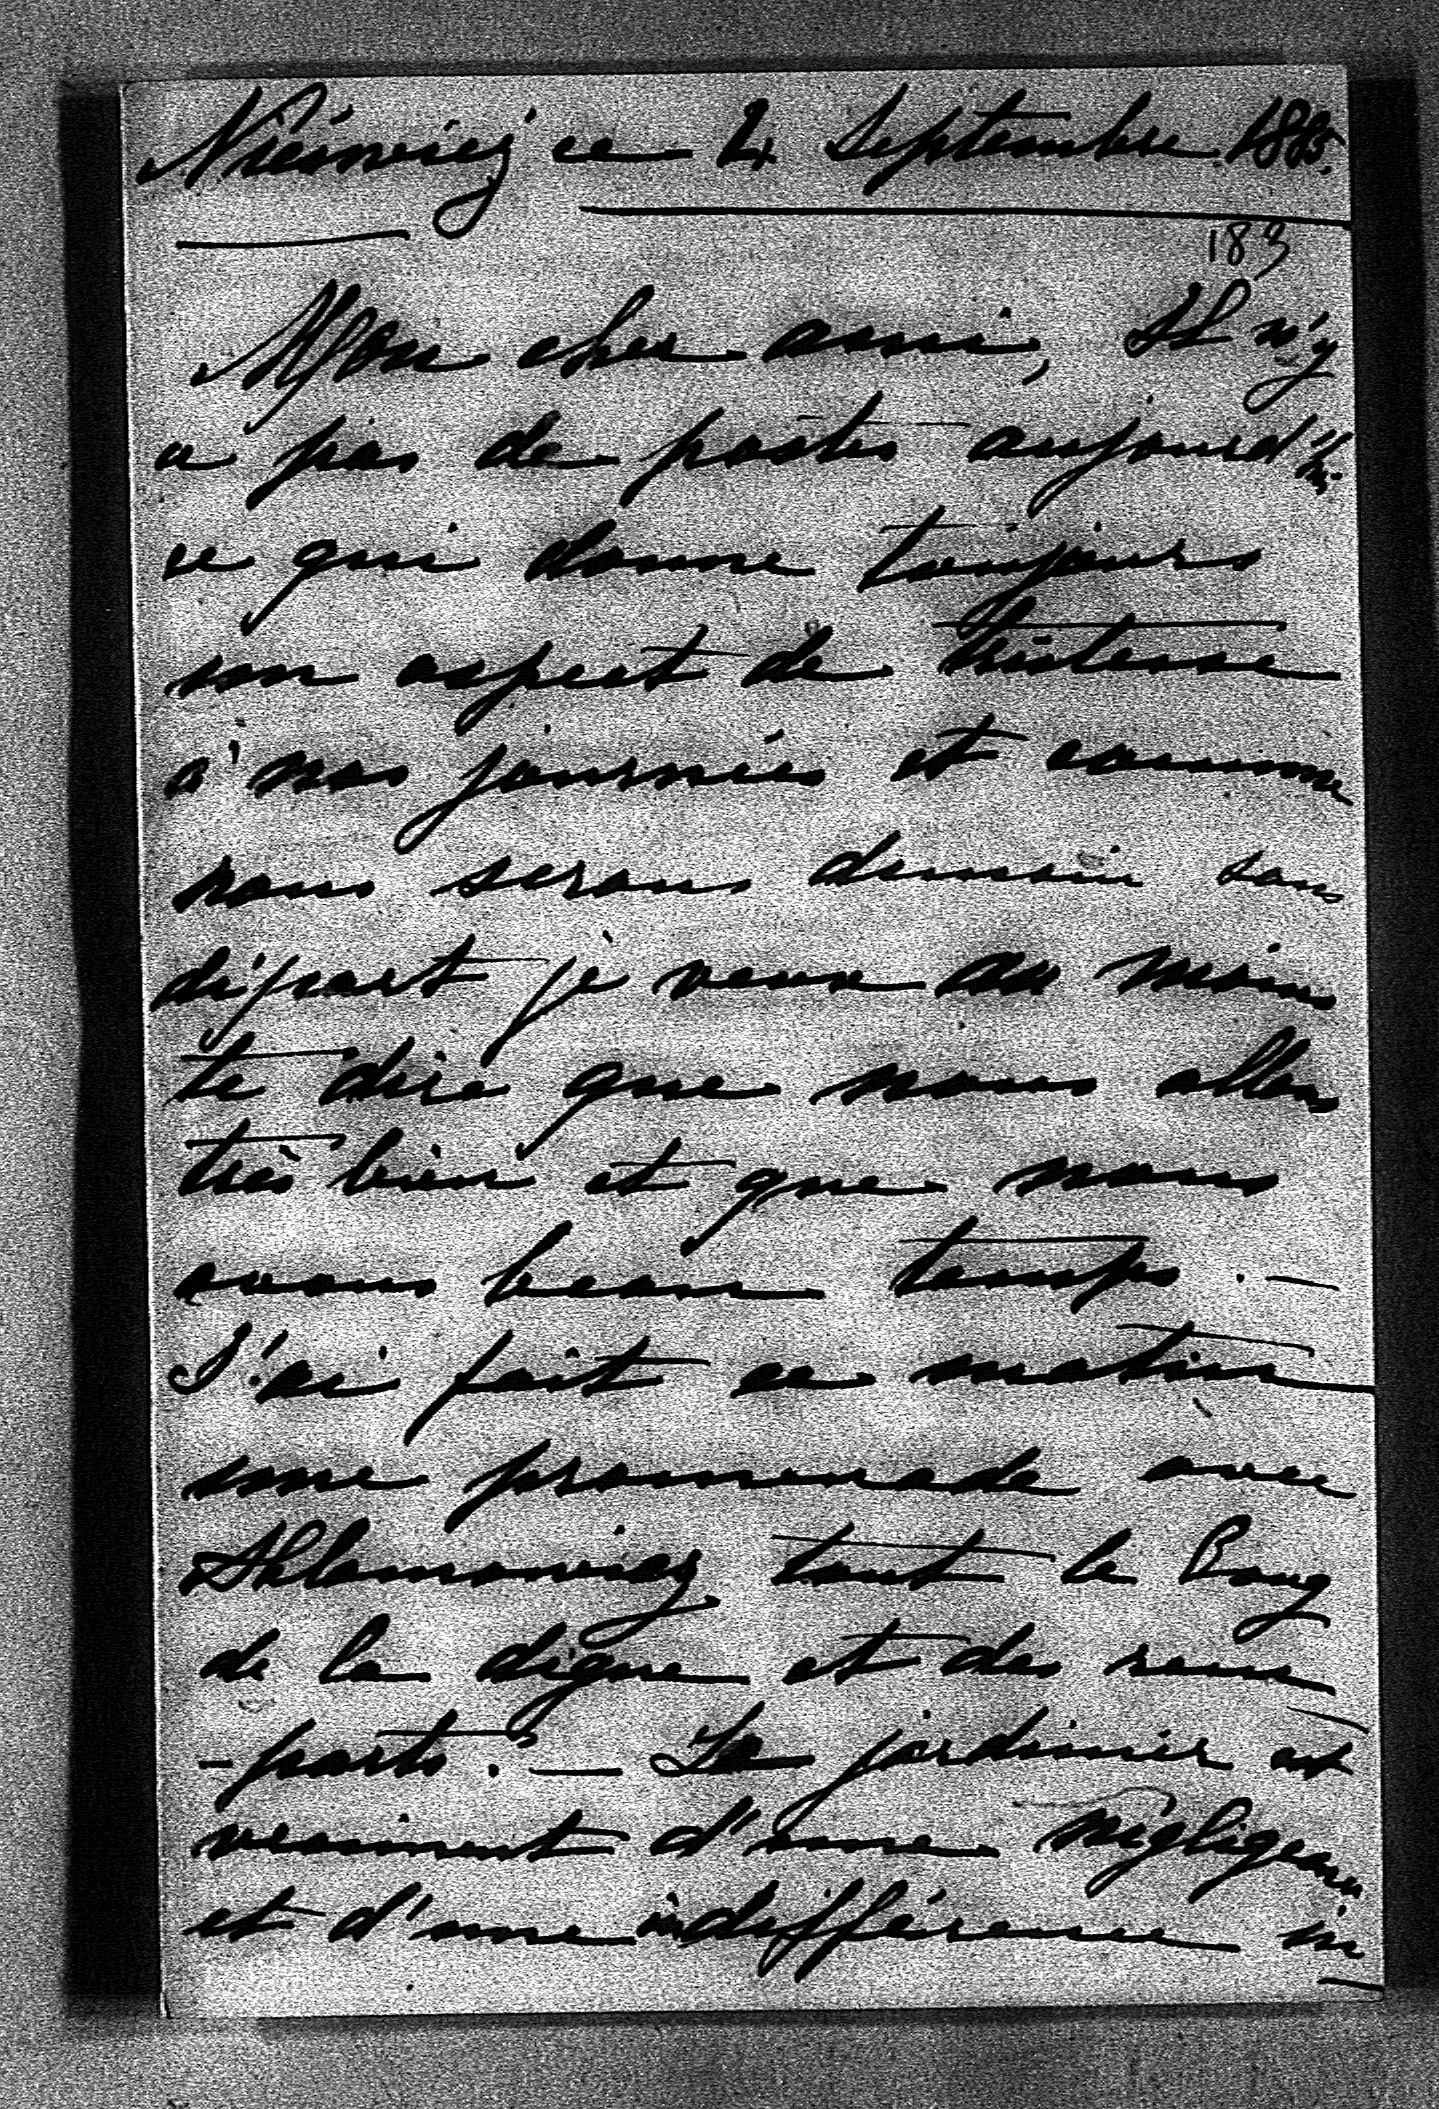 Nieśwież ce 4 Septembre 1885.
183
Mon cher ami, Il n'y
a pas de postes aujourd'hui
ce qui donne toujours
un aspect de tristesse
à nos journées et comme
nous serons demain sans
départ je veux au moins
te dire que nous allons
très bien et que nous
avons beau temps. —
J'ai fait ce matin
une promenade avec
Shlamowicz tout le long
de la digue et des rem
-parts. — Le jardinier est
vraiment d'une négligeance
et d'une indifférence in